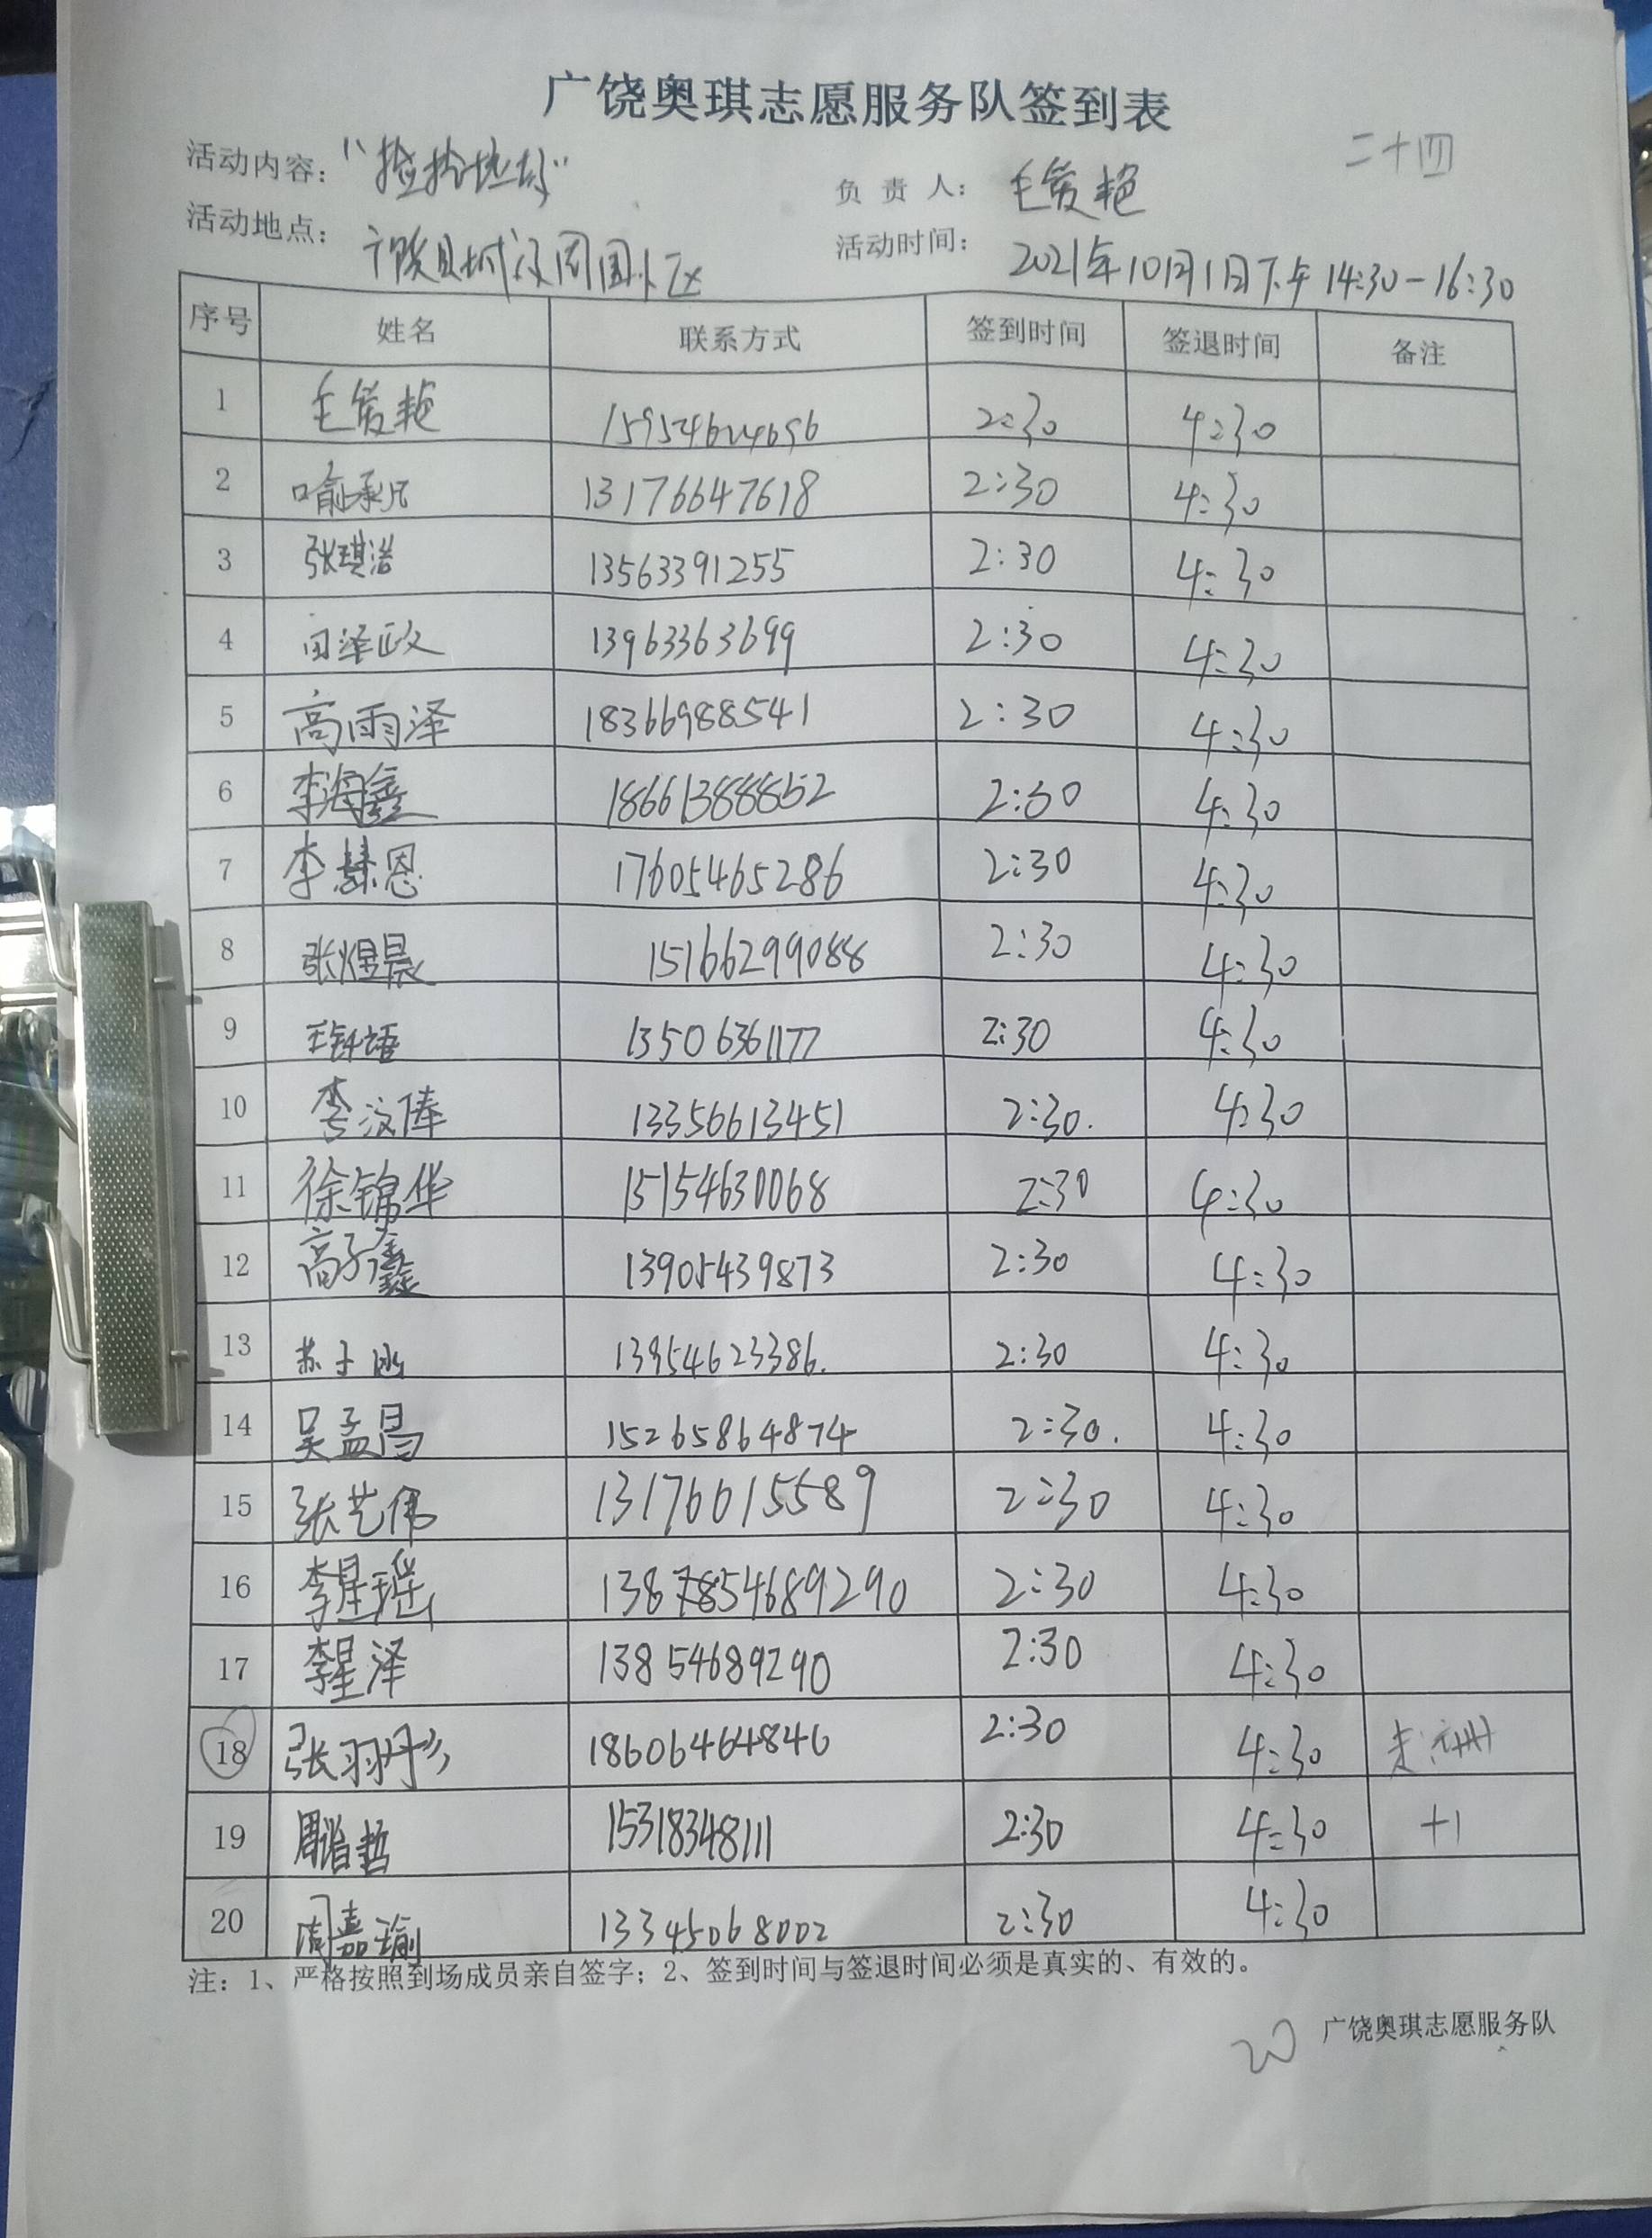 广饶奥琪志愿服务队签到表
二十四
活动内容：“捡拾垃圾” 负责人：毛爱艳
活动地点：广饶县城及周围小区 活动时间：2021年10月1日下午14:30-16:30
序号 姓名 联系方式 签到时间 签退时间 备注
1 毛爱艳 15954624696 2:30 4:30
2 喻承凡 13176647618 2:30 4:30
3 张琪浩 13563391255 2:30 4:30
4 田泽政 13963363699 2:30 4:30
5 高雨泽 18366988541 2:30 4:30
6 李海鑫 18661388852 2:30 4:30
7 李慧恩 17605465286 2:30 4:30
8 张煜晨 15166299088 2:30 4:30
9 13506361177 2:30 4:30
10 李汶俸 13356613451 2:30. 4:30
11 徐锦华 15154630068 2:30 4:30
12 高子鑫 13905439873 2:30 4:30
13 苏子涵 13954623386. 2:30 4:30
14 吴孟昌 15265864874 2:30. 4:30
15 张艺伟 13176615589 2:30 4:30
16 李星瑶 13854689290 2:30 4:30
17 李星泽 13854689290 2:30 4:30
18 张羽彤 18606464846 2:30 4:30 未注册
19 周哲 15318348111 2:30 4:30 +1
20 周嘉瑜 13345068002 2:30 4:30
注：1、严格按照到场成员亲自签字；2、签到时间与签退时间必须是真实的、有效的。
20 广饶奥琪志愿服务队